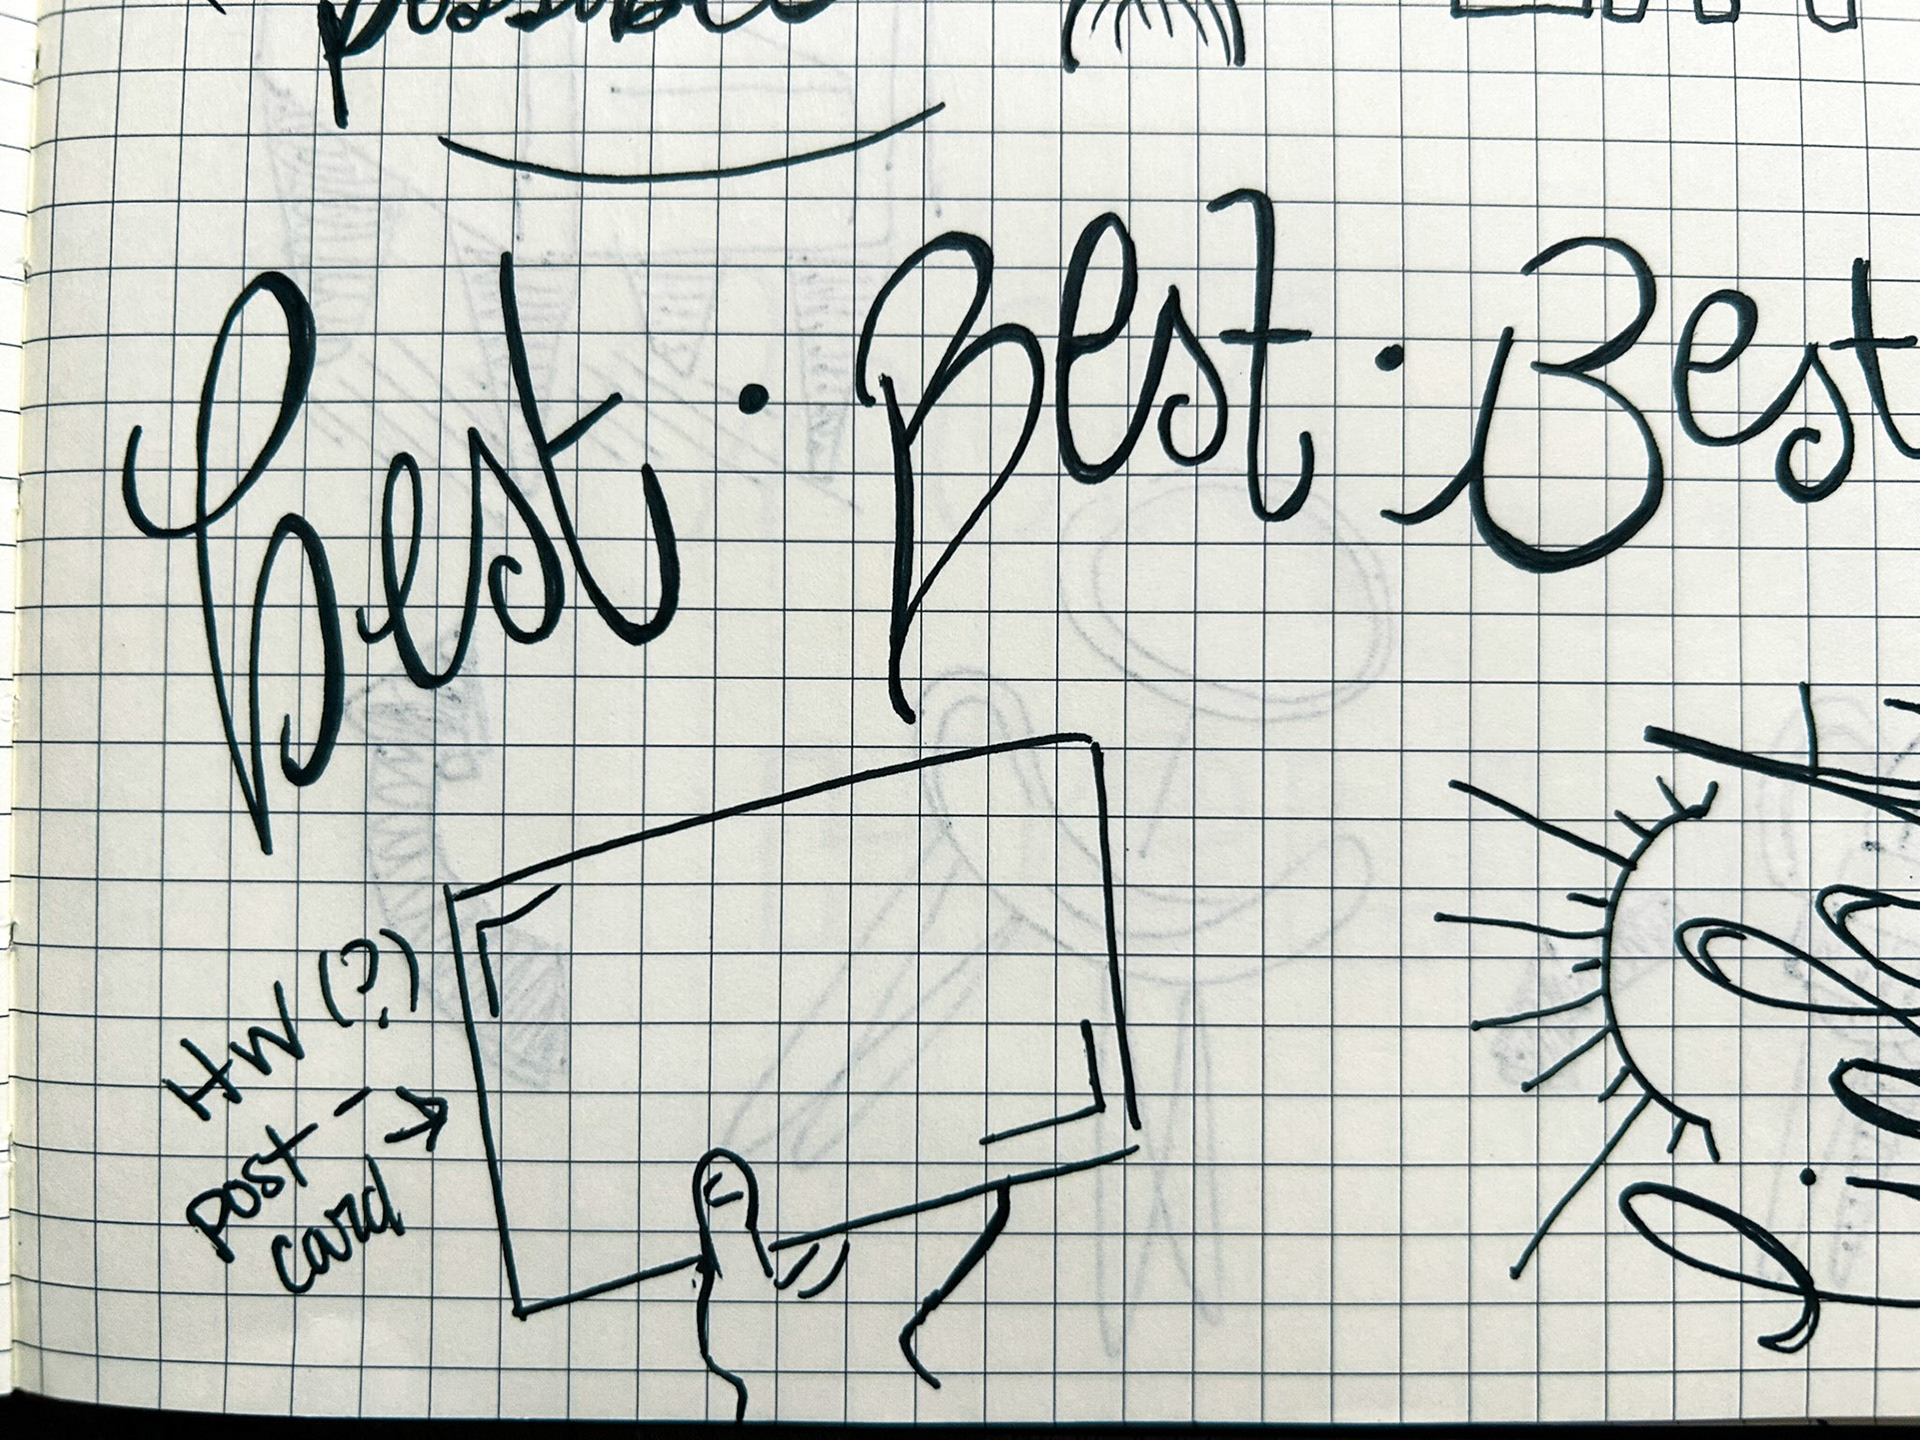 possible
Best · Best · Best
HW (?)
post-
card